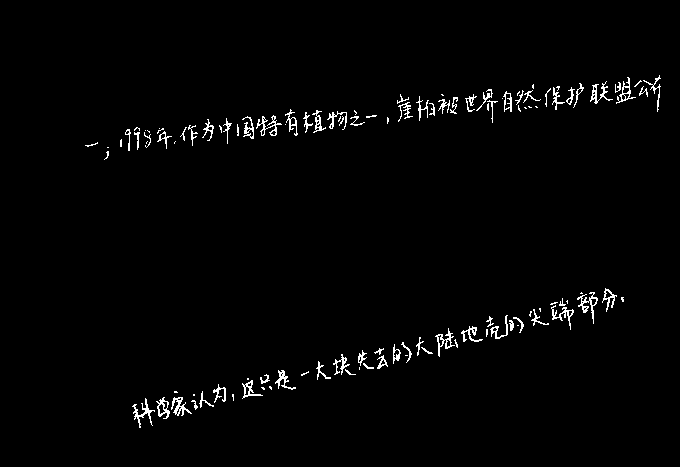 一；1998年，作为中国特有植物之一，崖柏被世界自然保护联盟公布
科学家认为，这只是一大块失去的大陆地壳的尖端部分。